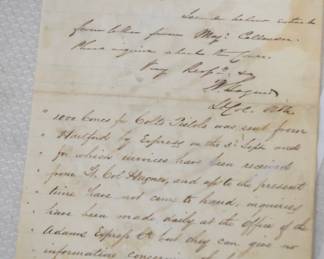 from letter from Maj. Callender.
Please inquire about the Cones.
Very Resp. &c
Lt Col. Ord.
" 1000 Cones for Colts Pistols was sent from
" Hartford by Express on the 2d Sept. and
" for which invoices have been received
" from Lt. Col. Hagner, and up to the present
" time have not come to hand, inquiries
" have been made daily at the Office of the
" Adams Express Co but they can give no
" information concerning